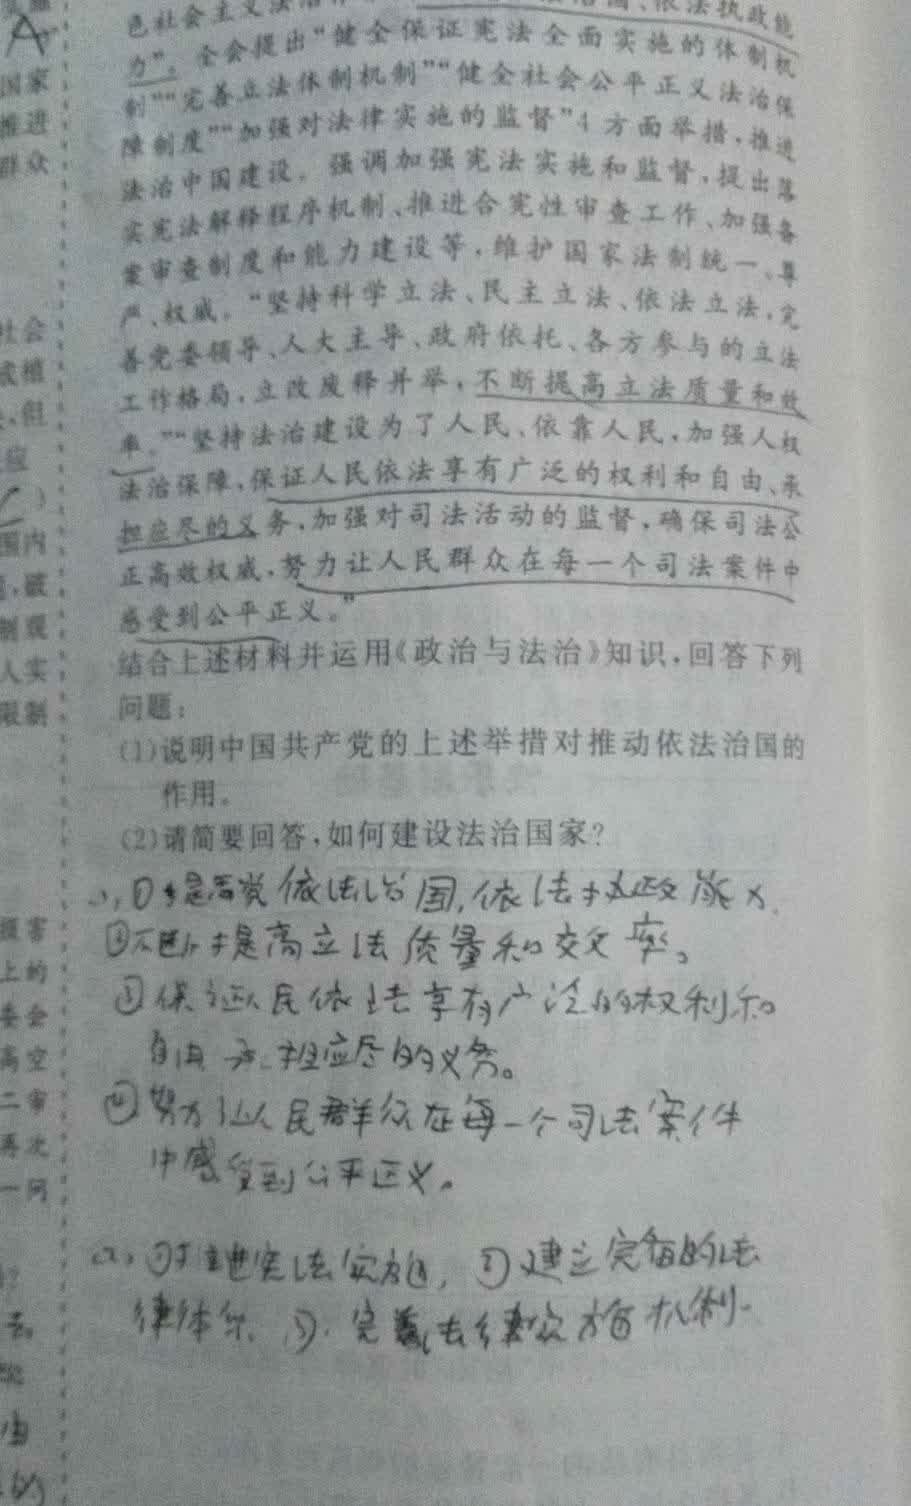 色社会主义法治
国、依法执政能
力”。全会提出“健全保证宪法全面实施的体制机
制”“完善立法体制机制”“健全社会公平正义法治保
障制度”“加强对法律实施的监督”4方面举措,推进
法治中国建设。强调加强宪法实施和监督,提出落
实宪法解释程序机制、推进合宪性审查工作、加强备
案审查制度和能力建设等,维护国家法制统一、尊
严、权威。“坚持科学立法、民主立法、依法立法,完
善党委领导、人大主导、政府依托、各方参与的立法
工作格局,立改废释并举,不断提高立法质量和效
率。”“坚持法治建设为了人民、依靠人民,加强人权
法治保障,保证人民依法享有广泛的权利和自由、承
担应尽的义务,加强对司法活动的监督,确保司法公
正高效权威,努力让人民群众在每一个司法案件中
感受到公平正义。”
结合上述材料并运用《政治与法治》知识,回答下列
问题:
(1)说明中国共产党的上述举措对推动依法治国的
作用。
(2)请简要回答,如何建设法治国家?
(1)①提高党依法治国,依法执政能力.
②不断提高立法质量和效率。
③保证人民依法享有广泛的权利和
自由 承担应尽的义务。
④努力让人民群众在每一个司法案件
中感受到公平正义。
(2)①推进宪法实施, ②建立完备的法
律体系 ③.完善法律实施机制.
A
国家
推进
群众
社会
成植
,但
应
国内
,破
制观
人实
限制
损害
上的
委会
高空
二审
再次
一问
由
的